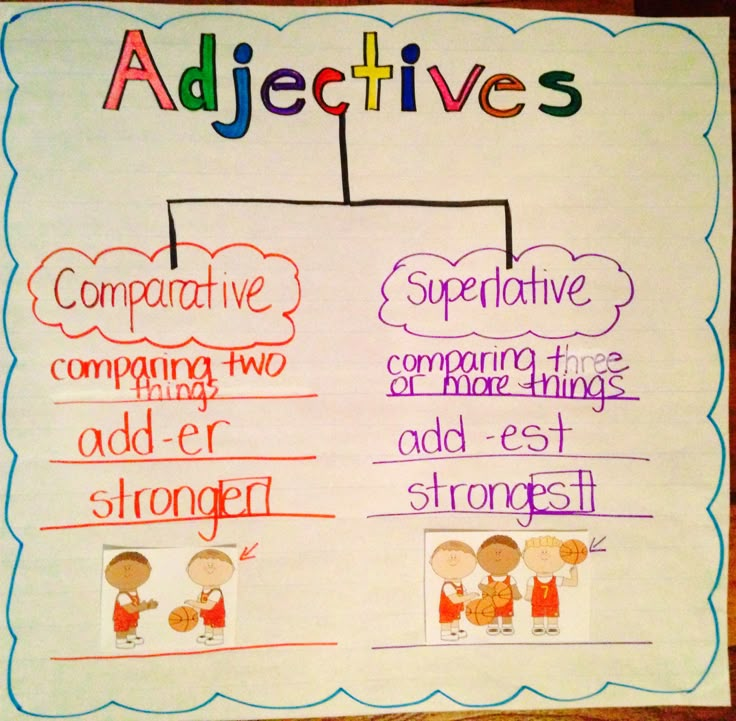 Adjectives
Comparative
comparing two
things
add-er
stronger
Superlative
comparing three
or more things
add -est
strongest
7